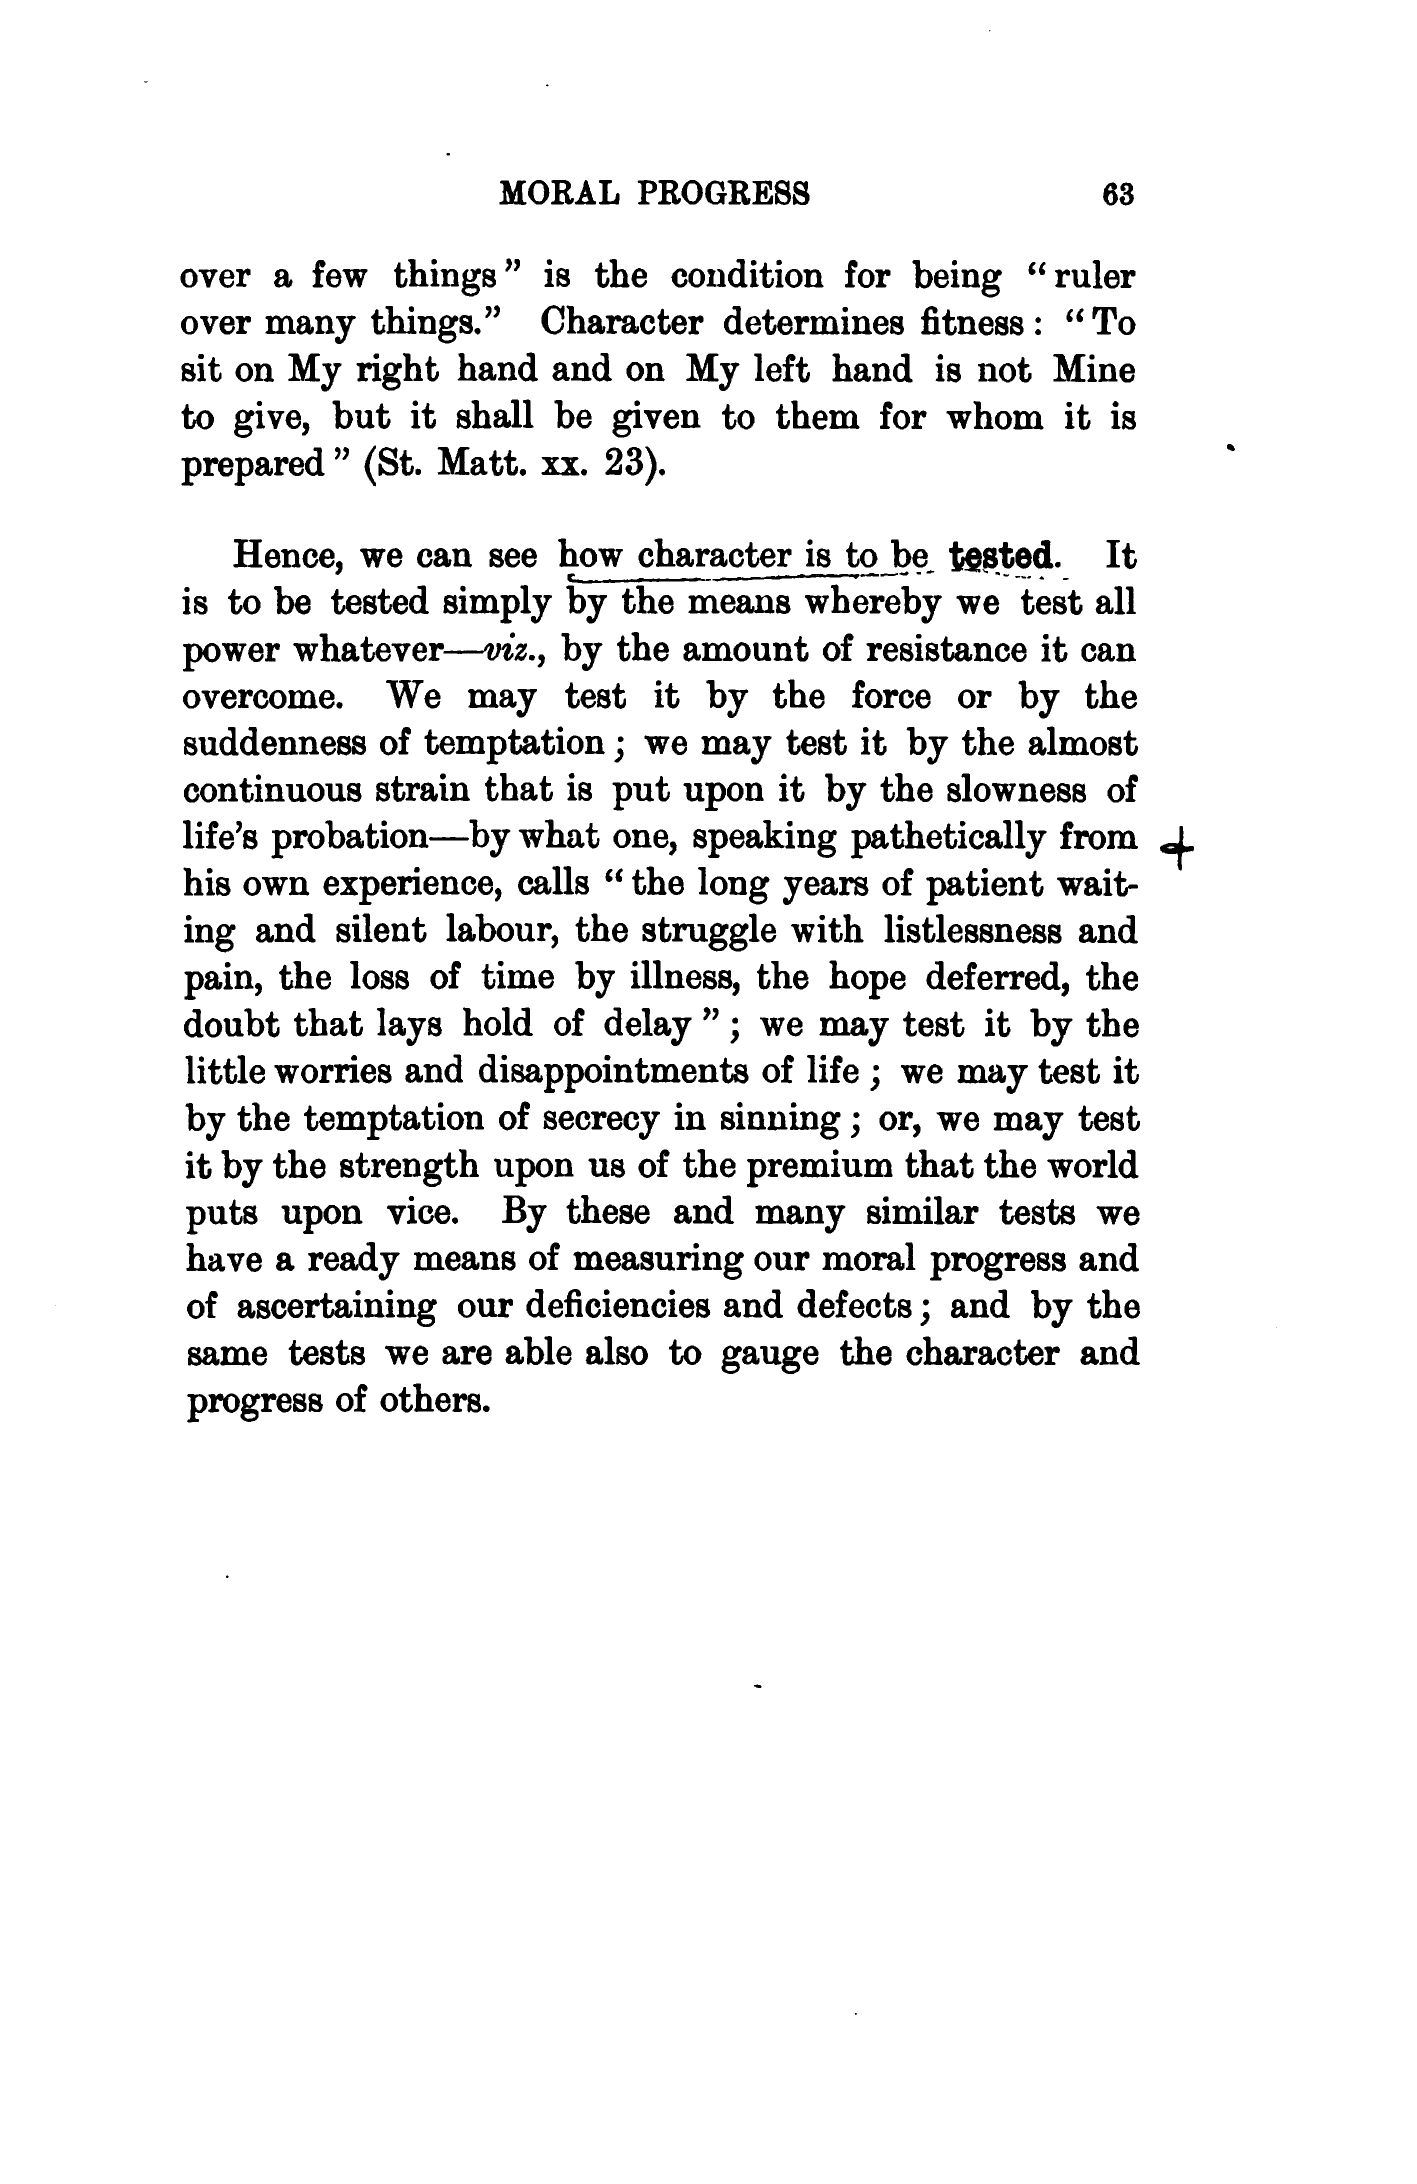 MORAL PROGRESS 63
over a few things” is the condition for being “ruler
over many things.” Character determines fitness: “To
sit on My right hand and on My left hand is not Mine
to give, but it shall be given to them for whom it is
prepared” (St. Matt. xx. 23).
Hence, we can see how character is to be tested. It
is to be tested simply by the means whereby we test all
power whatever—viz., by the amount of resistance it can
overcome. We may test it by the force or by the
suddenness of temptation; we may test it by the almost
continuous strain that is put upon it by the slowness of
life’s probation—by what one, speaking pathetically from
his own experience, calls “the long years of patient wait-
ing and silent labour, the struggle with listlessness and
pain, the loss of time by illness, the hope deferred, the
doubt that lays hold of delay”; we may test it by the
little worries and disappointments of life; we may test it
by the temptation of secrecy in sinning; or, we may test
it by the strength upon us of the premium that the world
puts upon vice. By these and many similar tests we
have a ready means of measuring our moral progress and
of ascertaining our deficiencies and defects; and by the
same tests we are able also to gauge the character and
progress of others.